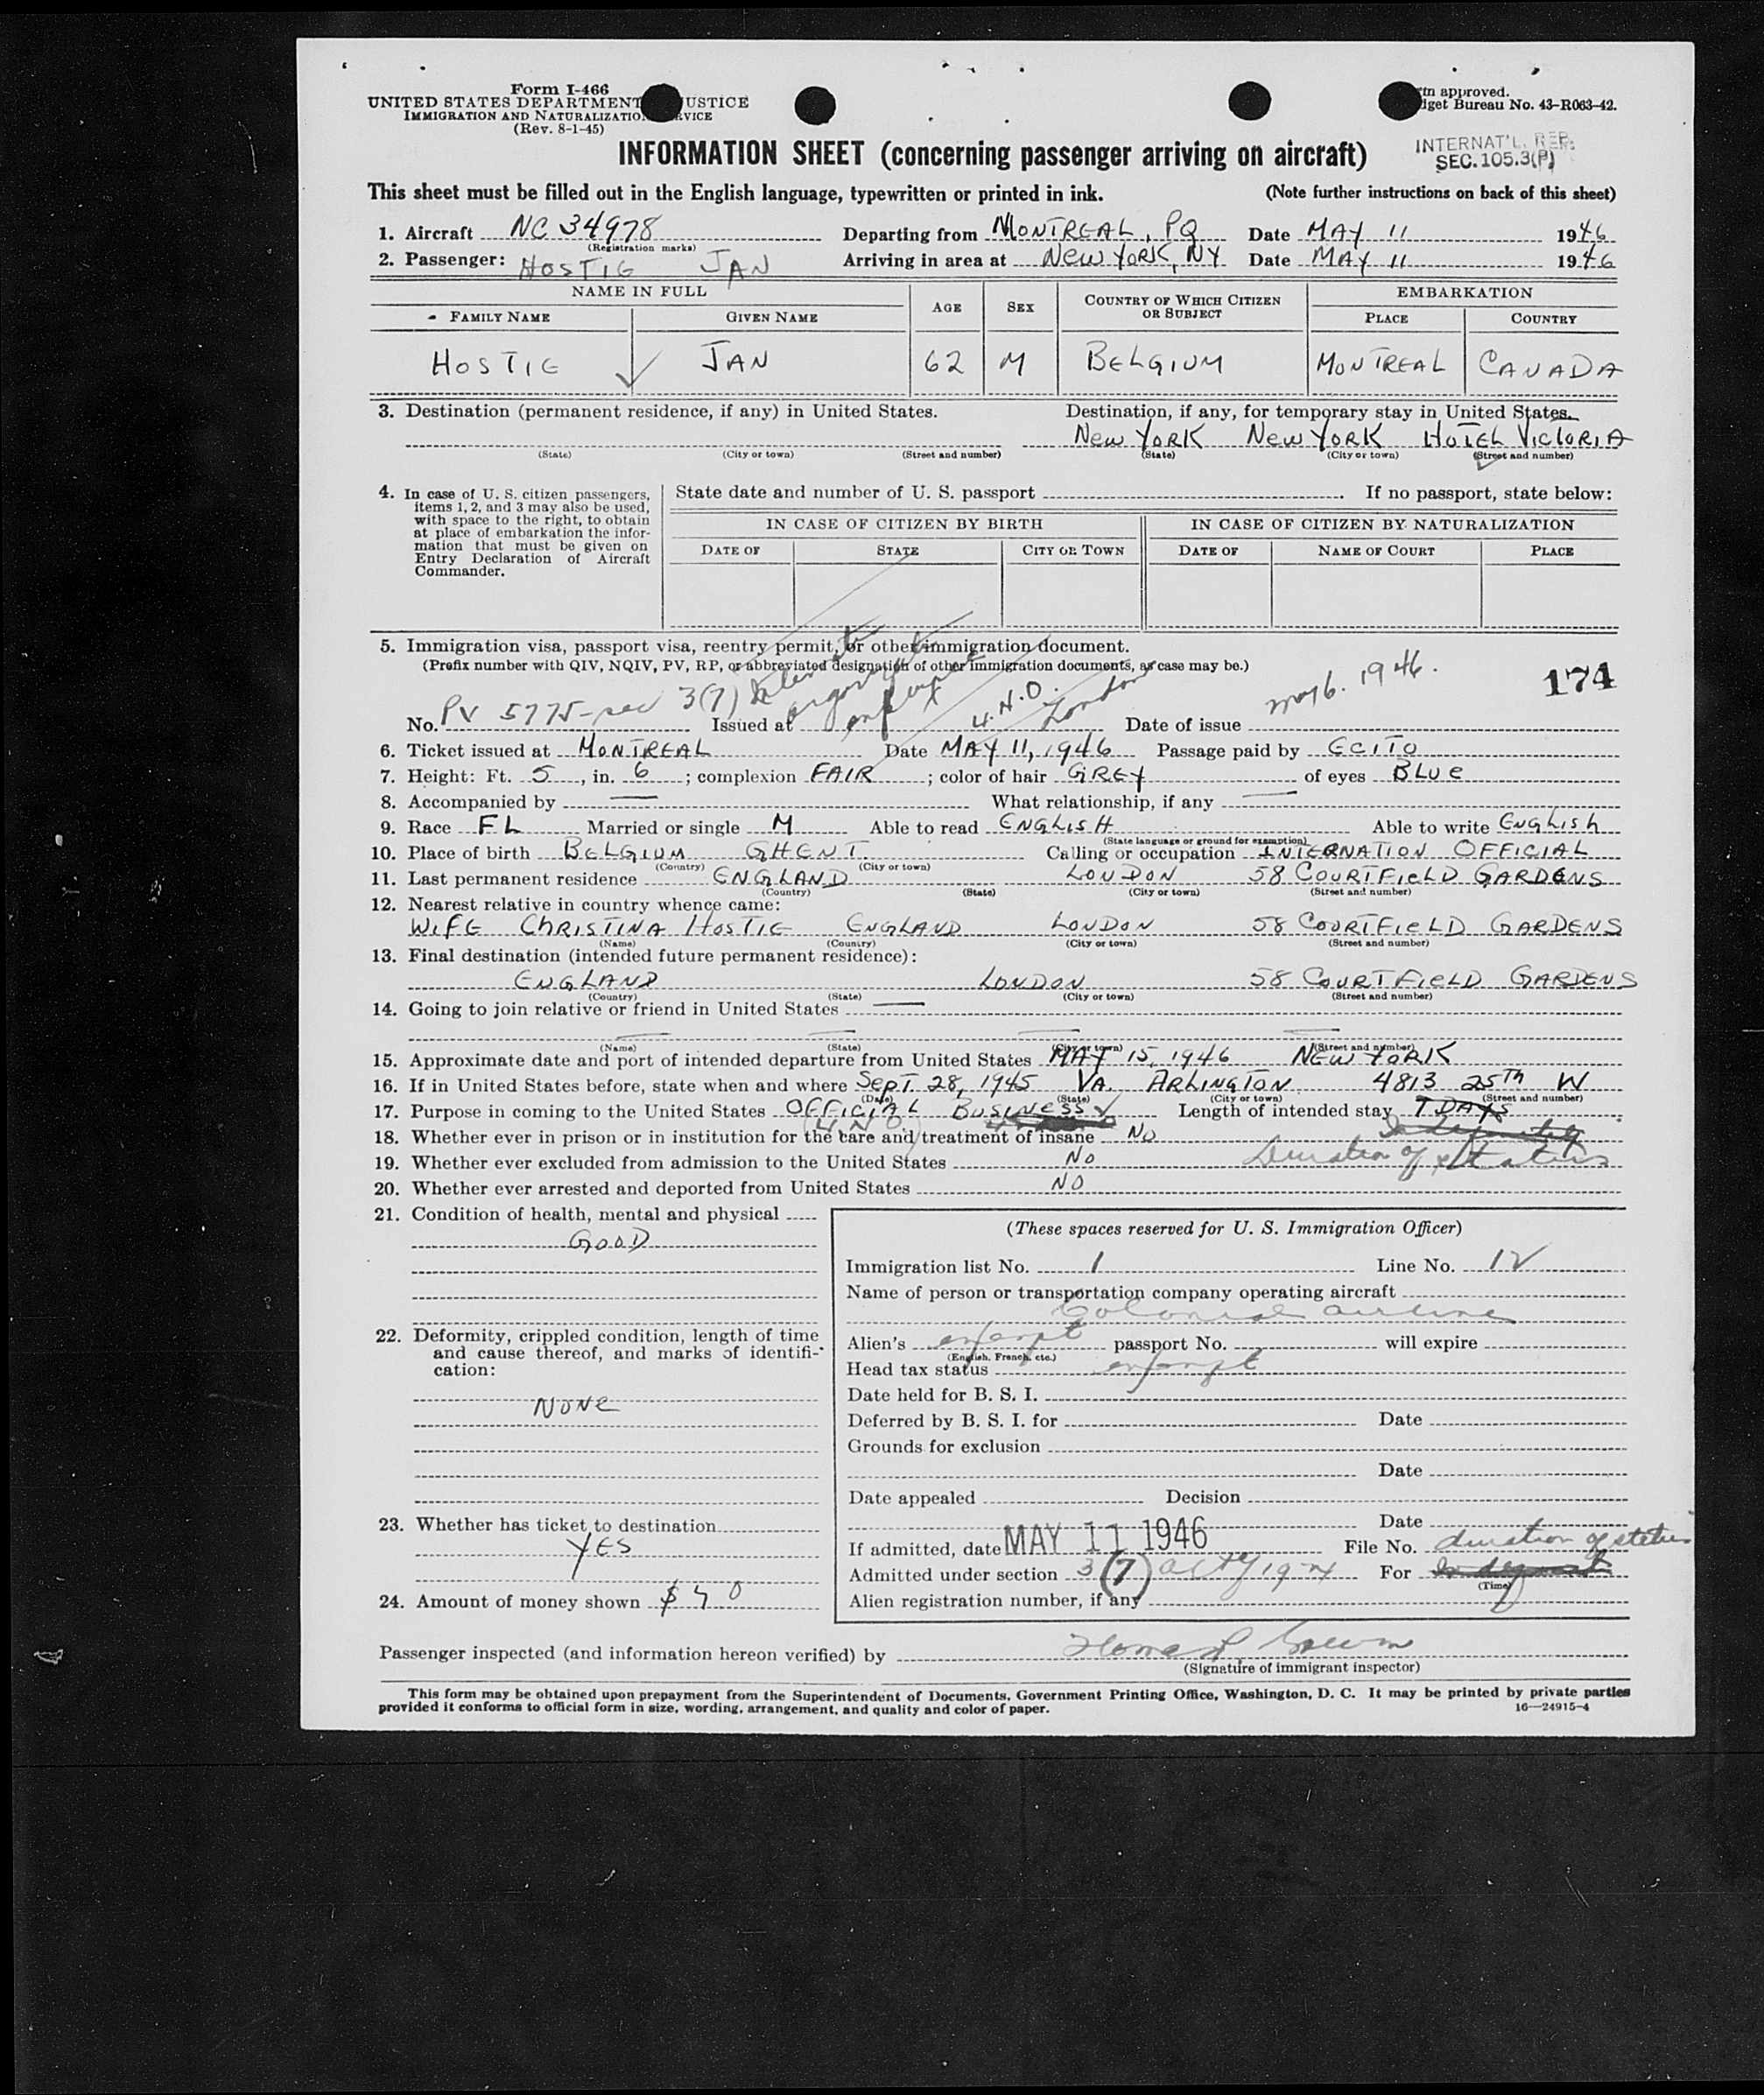 Form I-466
UNITED STATES DEPARTMENT USTICE
IMMIGRATION AND NATURALIZATIO RVICE
(Rev. 8-1-45)
m approved.
dget Bureau No. 43-R063-42.
INTERNAT'L. REP.
SEC. 105.3(P)
INFORMATION SHEET (concerning passenger arriving on aircraft)
This sheet must be filled out in the English language, typewritten or printed in ink. (Note further instructions on back of this sheet)
1. Aircraft NC 34978 Departing from MONTREAL, PQ Date MAY 11 1946
(Registration marks)
2. Passenger: HOSTIE JAN Arriving in area at NEW YORK, NY Date MAY 11 1946
NAME IN FULL AGE SEX COUNTRY OF WHICH CITIZEN OR SUBJECT EMBARKATION
FAMILY NAME GIVEN NAME PLACE COUNTRY
HOSTIE JAN 62 M BELGIUM MONTREAL CANADA
3. Destination (permanent residence, if any) in United States. Destination, if any, for temporary stay in United States.
NEW YORK NEW YORK HOTEL VICTORIA
(State) (City or town) (Street and number) (State) (City or town) (Street and number)
4. In case of U. S. citizen passengers, items 1, 2, and 3 may also be used, with space to the right, to obtain at place of embarkation the information that must be given on Entry Declaration of Aircraft Commander.
State date and number of U. S. passport . If no passport, state below:
IN CASE OF CITIZEN BY BIRTH IN CASE OF CITIZEN BY NATURALIZATION
DATE OF STATE CITY OR TOWN DATE OF NAME OF COURT PLACE
5. Immigration visa, passport visa, reentry permit, or other immigration document.
(Prefix number with QIV, NQIV, PV, RP, or abbreviated designation of other immigration documents, as case may be.)
174
No. PV 5775-sec 3(7) Issued at London Date of issue May 6. 1946.
6. Ticket issued at MONTREAL Date MAY 11, 1946 Passage paid by ECITO
7. Height: Ft. 5, in. 6; complexion FAIR; color of hair GREY of eyes BLUE
8. Accompanied by — What relationship, if any —
9. Race FL Married or single M Able to read ENGLISH Able to write ENGLISH
(State language or ground for exemption)
10. Place of birth BELGIUM GHENT. Calling or occupation INTERNATION OFFICIAL
(Country) (City or town)
11. Last permanent residence ENGLAND LONDON 58 COURTFIELD GARDENS
(Country) (State) (City or town) (Street and number)
12. Nearest relative in country whence came:
WIFE CHRISTINA HOSTIE ENGLAND LONDON 58 COURTFIELD GARDENS
(Name) (Country) (City or town) (Street and number)
13. Final destination (intended future permanent residence):
ENGLAND LONDON 58 COURTFIELD GARDENS
(Country) (State) (City or town) (Street and number)
14. Going to join relative or friend in United States —
(Name) (State) (City or town) (Street and number)
15. Approximate date and port of intended departure from United States MAY 15, 1946 NEW YORK
16. If in United States before, state when and where SEPT. 28, 1945 VA. ARLINGTON 4813 25TH W
(Date) (State) (City or town) (Street and number)
17. Purpose in coming to the United States OFFICIAL BUSINESS Length of intended stay 7 DAYS
18. Whether ever in prison or in institution for the care and treatment of insane NO
19. Whether ever excluded from admission to the United States NO Duration of status
20. Whether ever arrested and deported from United States NO
21. Condition of health, mental and physical
GOOD
22. Deformity, crippled condition, length of time and cause thereof, and marks of identification:
NONE
23. Whether has ticket to destination
YES
24. Amount of money shown $40
(These spaces reserved for U. S. Immigration Officer)
Immigration list No. 1 Line No. 12
Name of person or transportation company operating aircraft
Colonial airline
Alien's exempt passport No. will expire
(English, French, etc.)
Head tax status exempt
Date held for B. S. I.
Deferred by B. S. I. for Date
Grounds for exclusion
Date
Date appealed Decision
Date
If admitted, date MAY 11 1946 File No. duration of status
Admitted under section 3(7) act 1924 For
(Time)
Alien registration number, if any
Passenger inspected (and information hereon verified) by
(Signature of immigrant inspector)
This form may be obtained upon prepayment from the Superintendent of Documents, Government Printing Office, Washington, D. C. It may be printed by private parties
provided it conforms to official form in size, wording, arrangement, and quality and color of paper.
16—24915-4